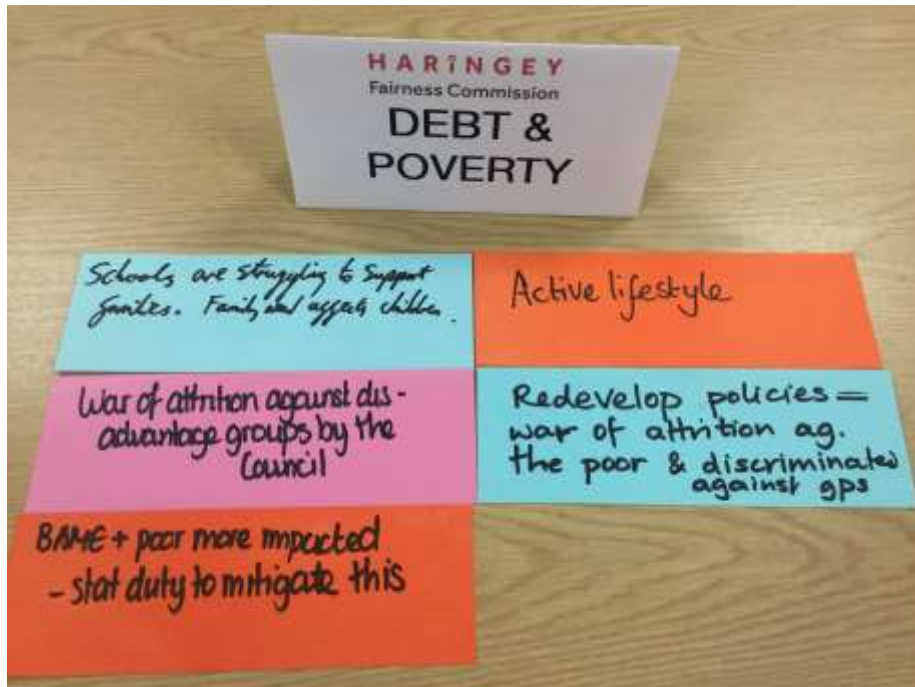 HARINGEY
Fairness Commission
DEBT &
POVERTY
Schools are struggling to support
families. Family and affects children.
Active lifestyle
War of attrition against dis-
advantage groups by the
Council
Redevelop policies =
war of attrition ag.
the poor & discriminated
against gps
BAME + poor more impacted
- stat duty to mitigate this